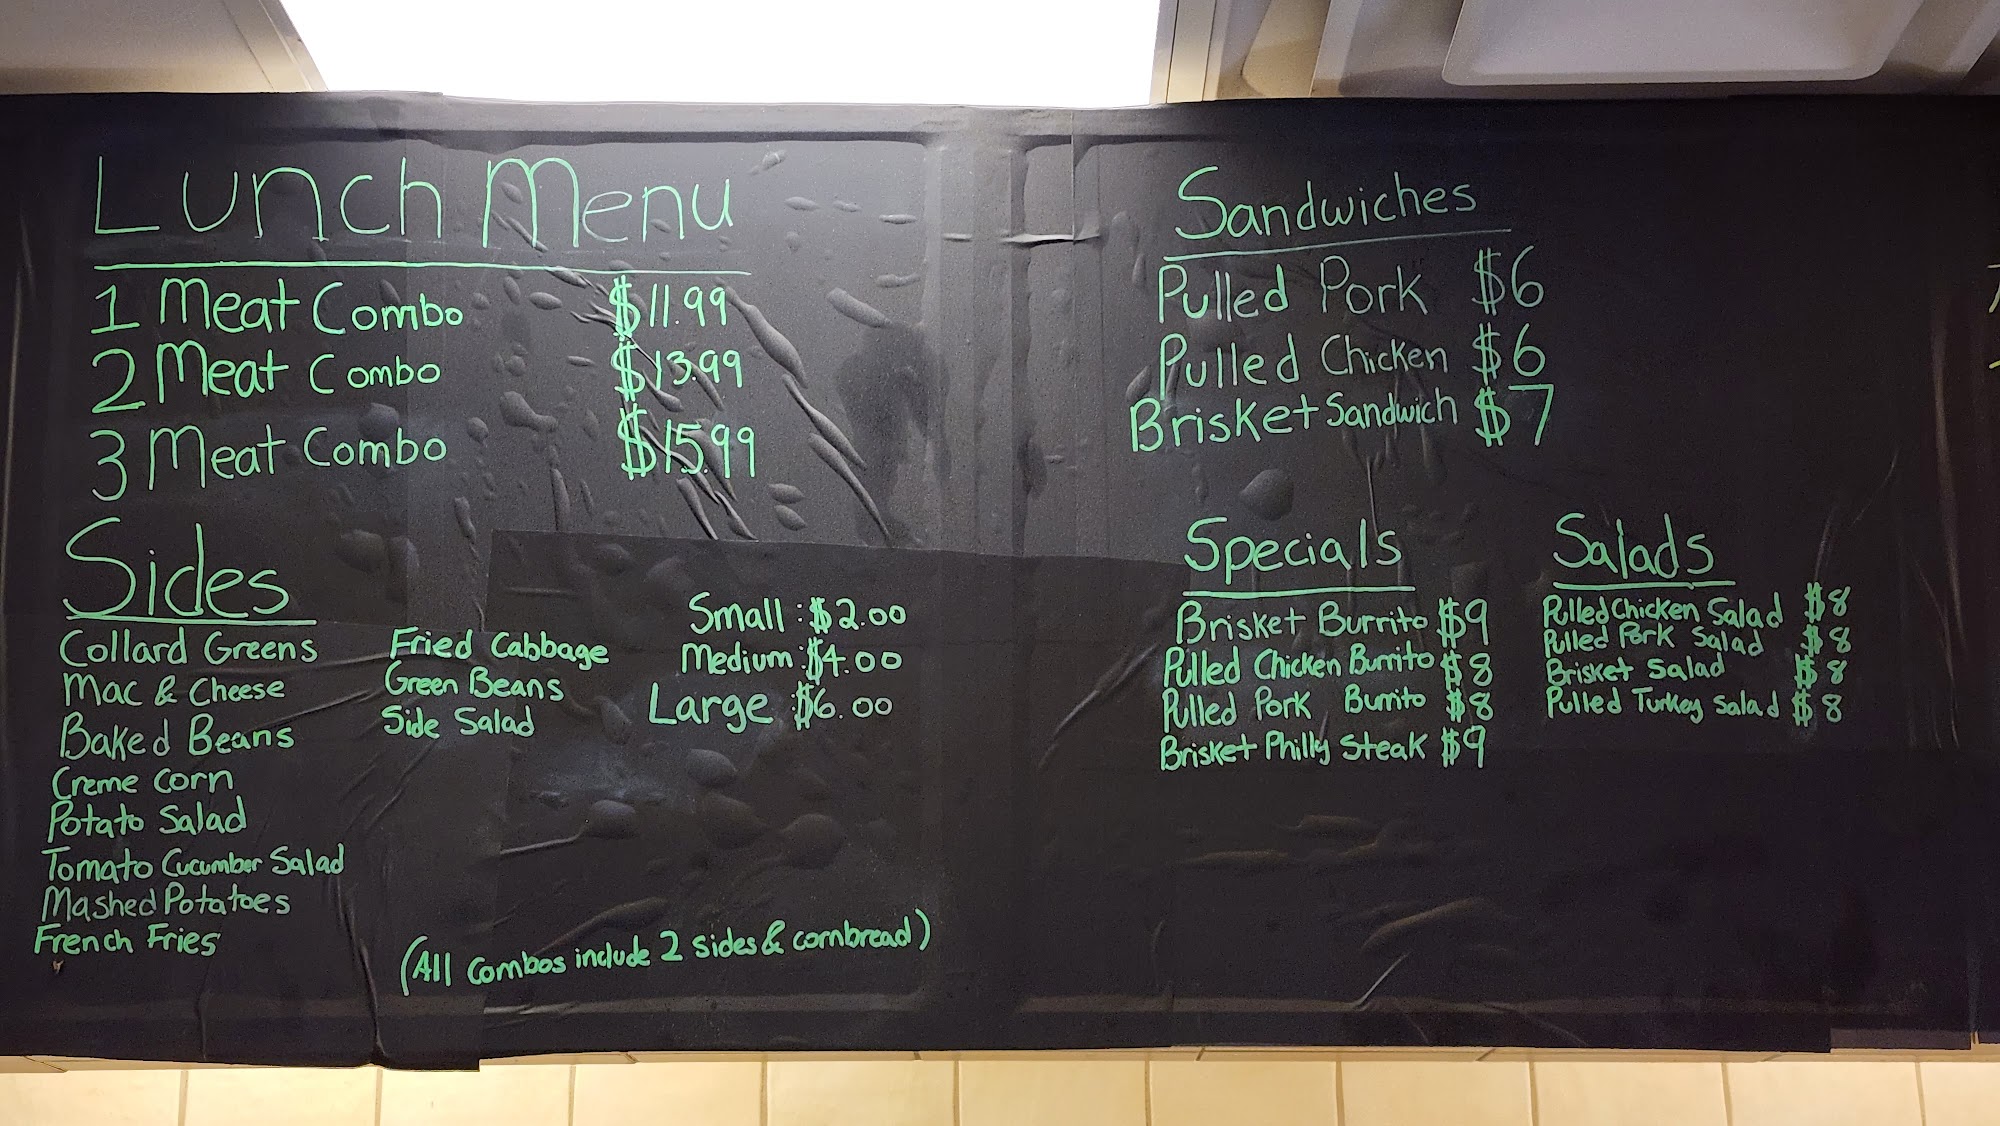 Lunch Menu
1 Meat Combo $11.99
2 Meat Combo $13.99
3 Meat Combo $15.99
Sides
Collard Greens
Mac & Cheese
Baked Beans
Creme Corn
Potato Salad
Tomato Cucumber Salad
Mashed Potatoes
French Fries
Fried Cabbage
Green Beans
Side Salad
Small : $2.00
Medium : $4.00
Large : $6.00
(All combos include 2 sides & cornbread)
Sandwiches
Pulled Pork $6
Pulled Chicken $6
Brisket Sandwich $7
Specials
Brisket Burrito $9
Pulled Chicken Burrito $8
Pulled Pork Burrito $8
Brisket Philly Steak $9
Salads
Pulled Chicken Salad $8
Pulled Pork Salad $8
Brisket Salad $8
Pulled Turkey Salad $8